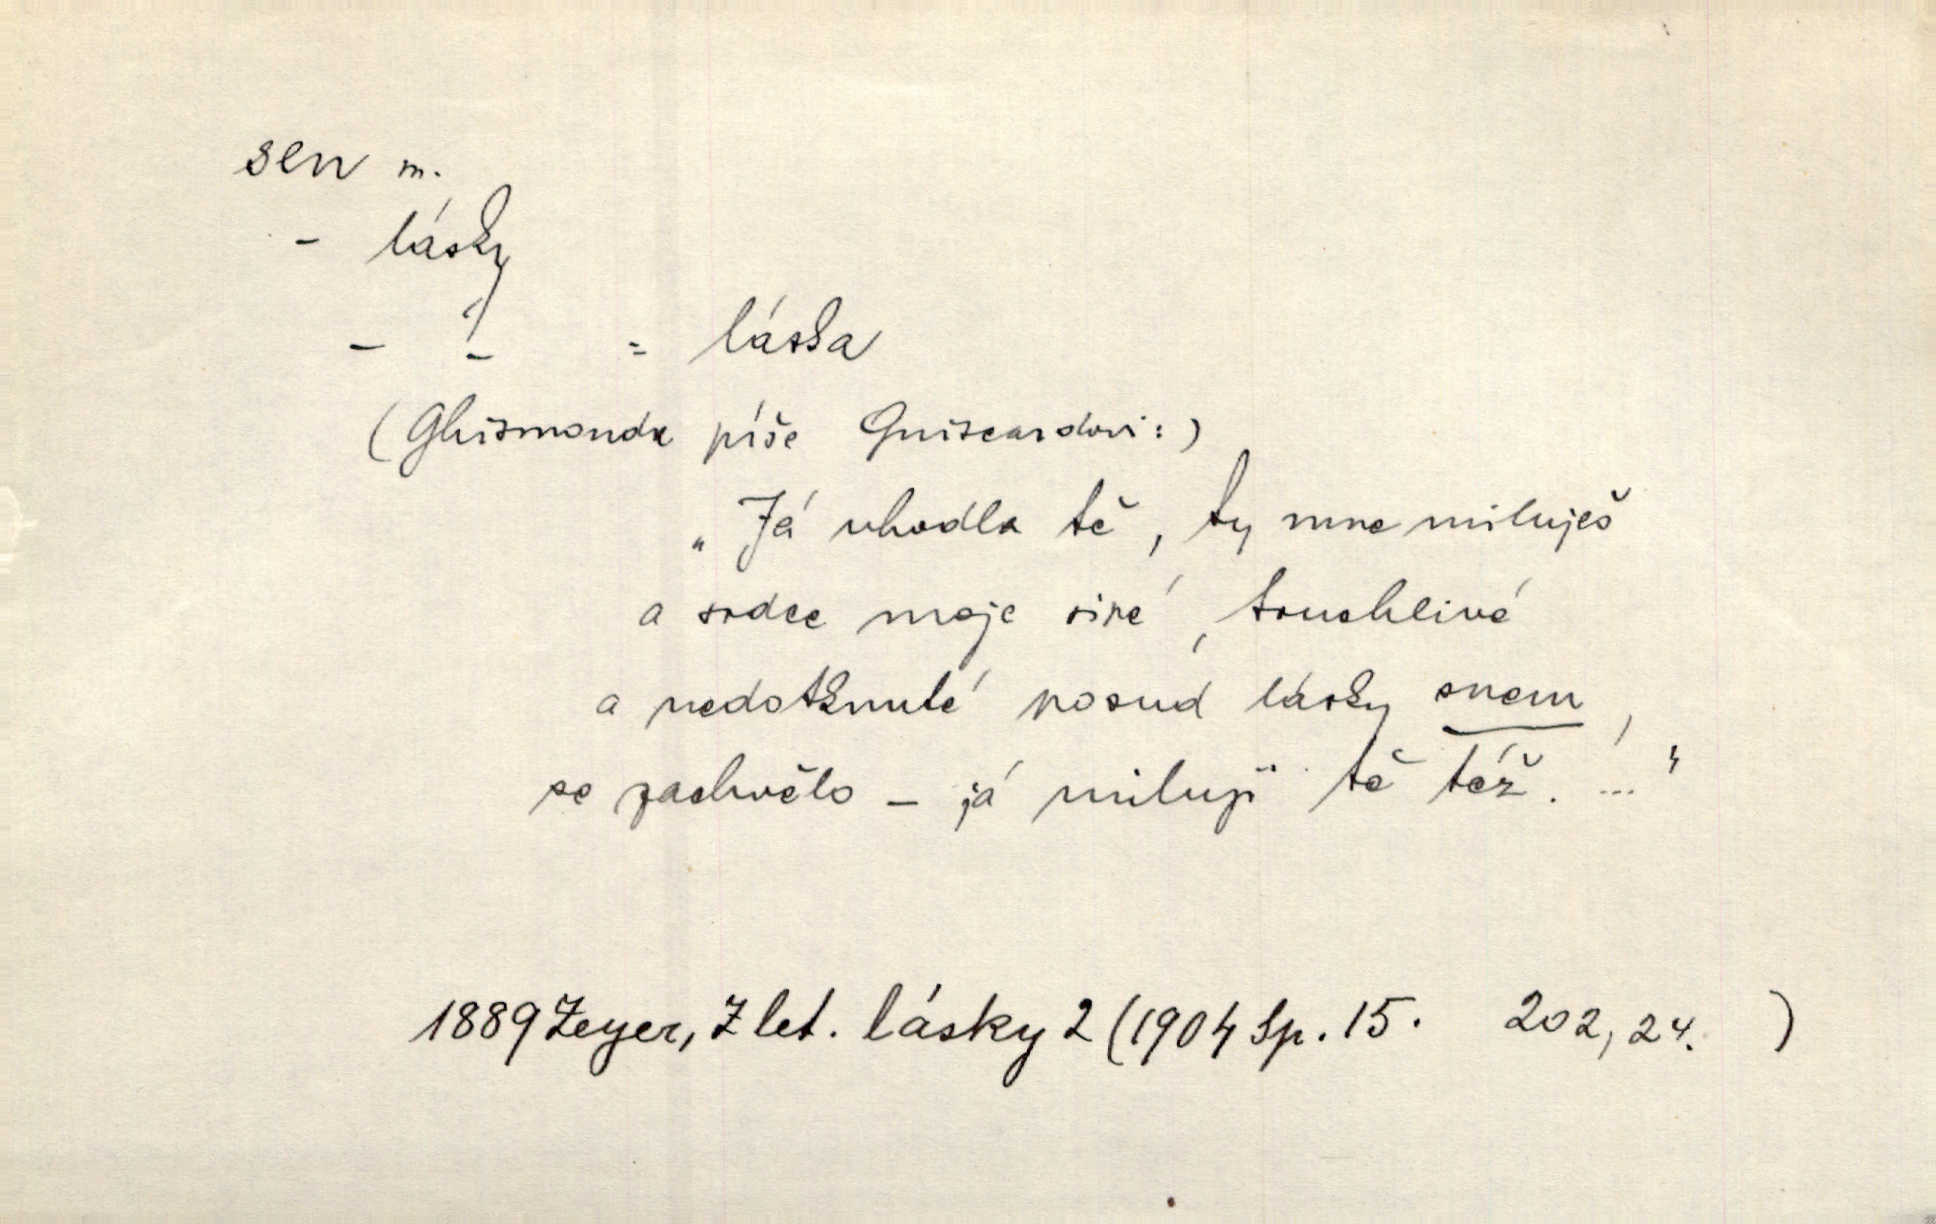 sen m.
- lásky
- - = láska
(Ghismonda píše Guiscardovi:)
„Já uhodla tě, ty mne miluješ
a srdce moje siré, truchlivé
a nedotknuté posud lásky snem,
se zachvělo – já miluji tě též. ..."
1889 Zeyer, Z let. lásky 2 (1904 Sp. 15. 202, 24. )